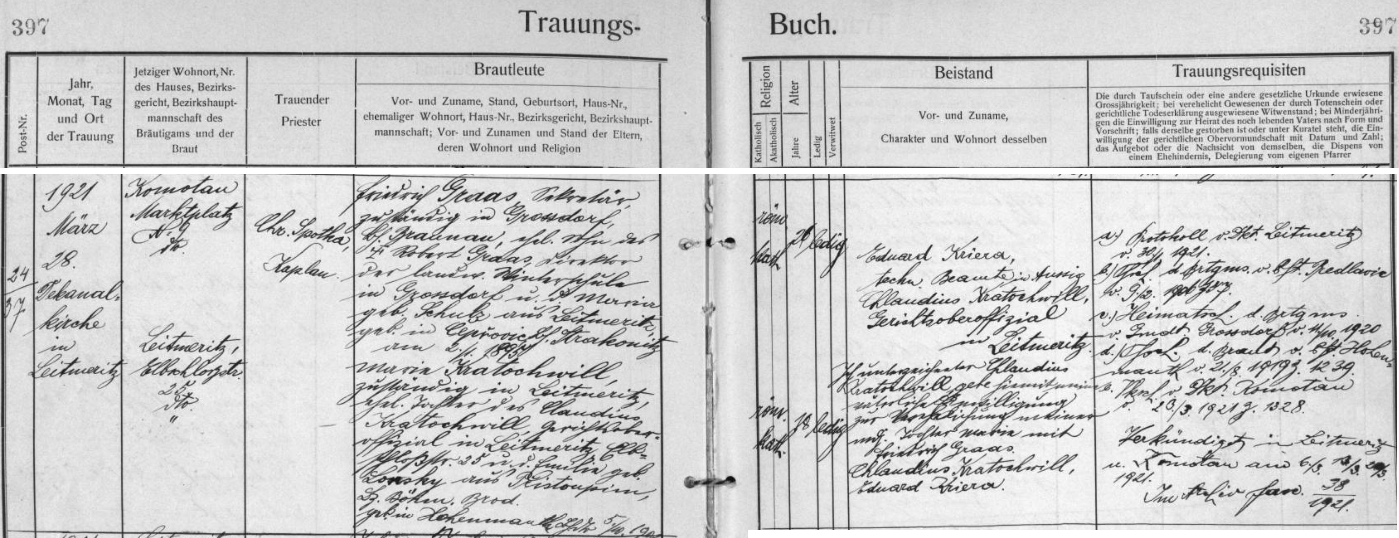 397
Trauungs-
Buch.
397
Post-Nr.
Jahr,
Monat, Tag
und Ort
der Trauung
Jetziger Wohnort, Nr.
des Hauses, Bezirks-
gericht, Bezirkshaupt-
mannschaft des
Bräutigams und der
Braut
Trauender
Priester
Brautleute
Vor- und Zuname, Stand, Geburtsort, Haus-Nr.,
ehemaliger Wohnort, Haus-Nr., Bezirksgericht, Bezirkshaupt-
mannschaft; Vor- und Zunamen und Stand der Eltern,
deren Wohnort und Religion
Religion
Katholisch
Akatholisch
Alter
Jahre
Ledig
Verwitwet
Beistand
Vor- und Zuname,
Charakter und Wohnort desselben
Trauungsrequisiten
Die durch Taufschein oder eine andere gesetzliche Urkunde erwiesene
Grossjährigkeit; bei verehelicht Gewesenen der durch Totenschein oder
gerichtliche Todeserklärung ausgewiesene Witwenstand; bei Minderjähri-
gen die Einwilligung zur Heirat des noch lebenden Vaters nach Form und
Vorschrift; falls derselbe gestorben ist oder unter Kuratel steht, die Ein-
willigung der gerichtlichen Obervormundschaft mit Datum und Zahl;
das Aufgebot oder die Nachsicht von demselben, die Dispens von
einem Ehehindernis, Delegierung vom eigenen Pfarrer
24
37
1921
März
28.
Dekanal-
kirche
in
Leitmeritz
Komotau
Marktplatz
N. 9
Leitmeritz,
Elbschloßstr.
25
Chr. Spotha,
Kaplan.
Friedrich Graas, Sekretär
zuständig in Grossdorf,
Bz. Braunau, ehel. Sohn des
Robert Graas, Direktor
der landw. Winterschule
in Grossdorf u. d. Maria
geb. Schulz aus Leitmeritz,
geb. in Strakonitz
am
Maria Kratochwill,
zuständig in Leitmeritz,
ehel. Tochter des Claudius
Kratochwill, Gerichtsober-
offizial in Leitmeritz, Elb-
25 u. d. Emilie geb.
aus
Bz. Böhm. Brod.
geb. in Hohenmauth
röm
kath.
ledig
röm
kath.
ledig
Eduard Kriera,
techn. Beamte in Aussig
Claudius Kratochwill,
Gerichtsoberoffizial
in
Leitmeritz.
Claudius
Kratochwill gebe hiemit meine
Einwilligung
zur Verehelichung meiner
Tochter Maria mit
Friedrich Graas.
Claudius Kratochwill,
Eduard Kriera.
a.) Protokoll v. Dkt. Leitmeritz
1921.
b.) d. Brtgms. v.
v. 9/12.
c.) Heimatsch. d. Brtgms.
v. Gmdt. Grossdorf v. 1920
d.) d. Braut v. Hohen-
mauth v. 1919 z. 1239.
e. v. Dkt. Komotau
v. 23/3 1921 z. 1328.
Verkündigt in Leitmeritz
u. Komotau am 6/3. 13/3.
1921.
Im Archiv fasz. 38
1921.